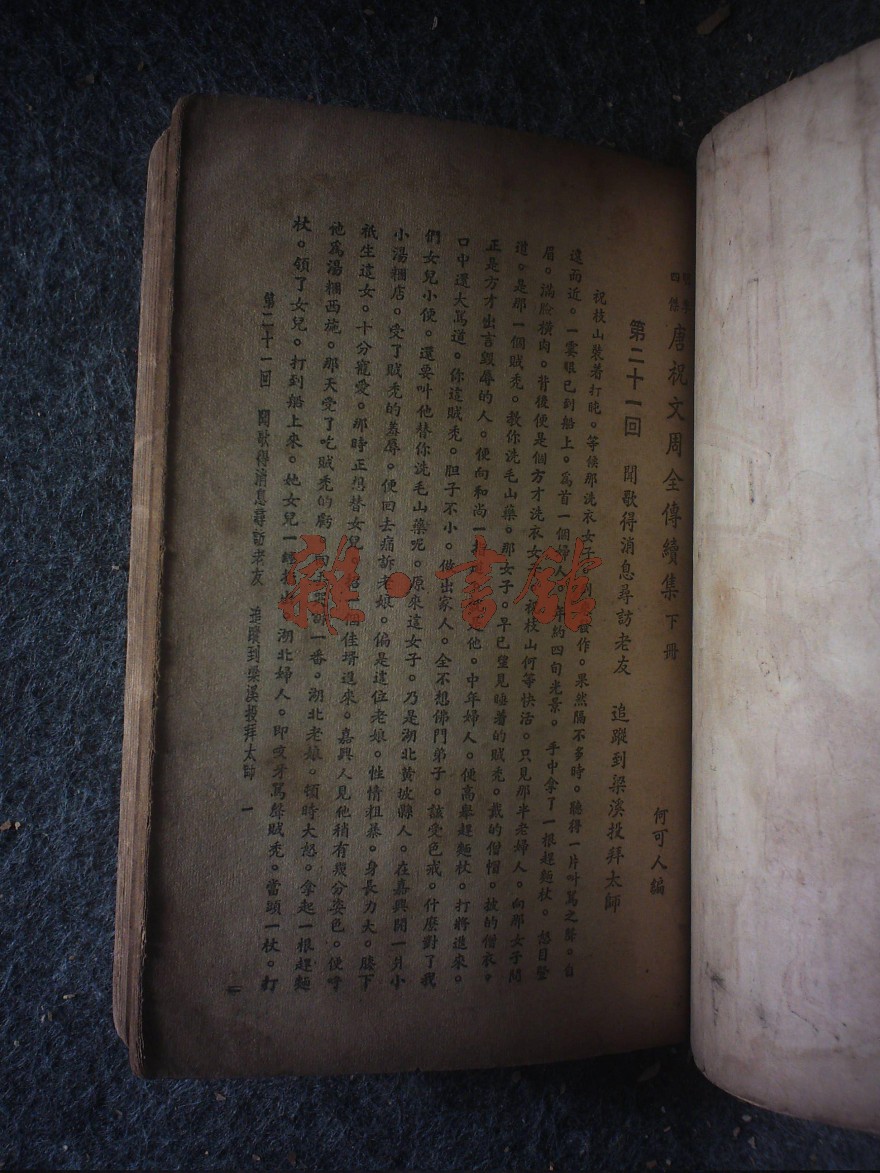 四傑
唐祝文周全傳續集 下冊
何可人編
第二十一回 聞歌得消息尋訪老友 追蹤到梁溪投拜太師
祝枝山裝着打盹。等候那洗衣女子 發作。果然隔不多時。聽得一片叫罵之聲。自
遠而近。一霎眼已到船上。爲首一個婦人。年約四旬光景。手中拿了一根趕麵杖。怒目竪
眉。滿臉橫肉。背後便是個方才洗衣女子。祝枝山何等快活。只見那半老婦人。向那女子問
道。是那一個賊禿。教你洗毛山藥。那女子。早已望見睡着的賊禿。戴的僧帽。披的僧衣。
正是方才出言毀辱的人。便向和尚一指 是他。中年婦人。便高舉趕麵杖。打將進來。
口中還大罵道。你這賊禿。胆子不小。做出家人。全不想佛門弟子。該受色戒。什麼對了我
們女兒小便。還要叫他替你洗毛山藥呢。原來這女子。乃是湖北黃坡縣人。在嘉興開一爿小
小湯糰店。受了賊禿的羞辱。便回去痛訴老娘。偏是這位老娘。性情粗暴。身長力大。膝下
祇生這女。十分寵愛。那時正想替女兒招一個佳壻進來。嘉興人見他稍有幾分姿色。便呼
他爲湯糰西施。那天受了吃賊禿的虧 一番。湖北老娘。頓時大怒。拿起一根趕麵
杖。領了女兒。打到船上來。她女兒一經指 湖北婦人。即咬牙罵聲賊禿。當頭一杖。打
第二十一回 聞歌得消息尋訪老友 追蹤到梁溪投拜太師 一
二
雜·書館